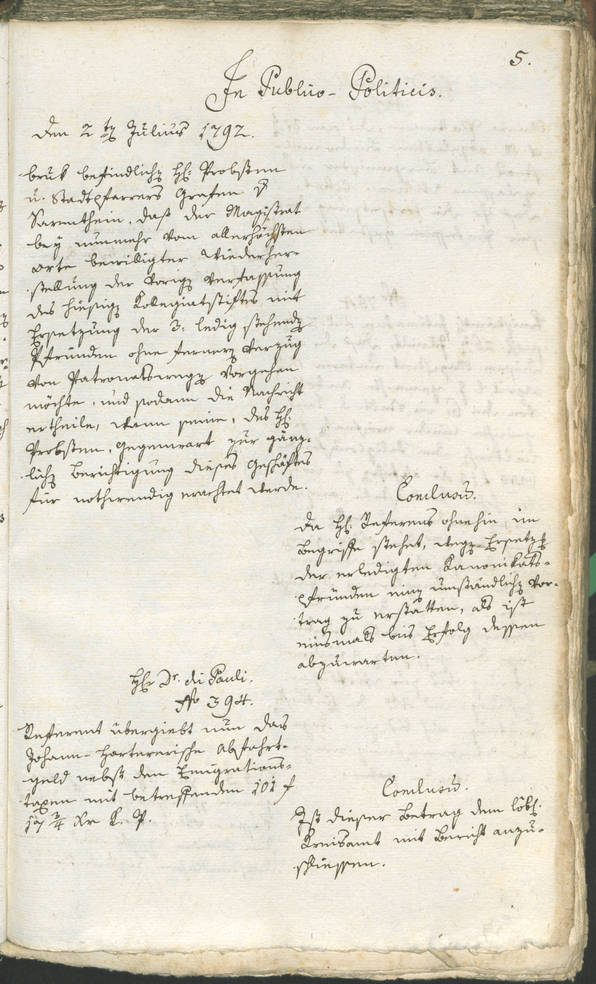 5.
In Publico-Politicis.
den 2 ten Julius 1792.
bruk befindlichen H: Probsten
u. Stadtpfarrers Grafen v
Sarnthein, daß der Magistrat
bey nunmehr vom allerhöchsten
Orte bewilligter Wiederher-
stellung der vorigen Verfassung
des hiesigen Kollegiatstiftes mit
Ersetzung der 3. ledig stehenden
Pfründen ohne fernern Verzug
von Patronatswegen vorgehen
möchte, und sodann die Nachricht
ertheile, wann seine, des H:
Probsten, Gegenwart zur gänz-
lichen Berichtigung dieses Geschäftes
für nothwendig erachtet werde.
Conclusum.
Da H: Referens ohnehin im
Begriffe stehet, wegen Ersetzung
der erledigten Kanonikats-
pfründen einen umständlichen Vor-
trag zu erstatten, als ist
einsmals der Erfolg dessen
abzuwarten.
H: Dr. di Pauli.
No 394.
Referent übergiebt nun das
Johann-Harterersche Abfahrt-
geld nebst den Emigrations-
taxen mit betreffenden 101 f
17 3/4 Xr E. P.
Conclusum.
Ist dieser Betrag dem löbl:
Kreisamt mit Bericht anzu-
schliessen.